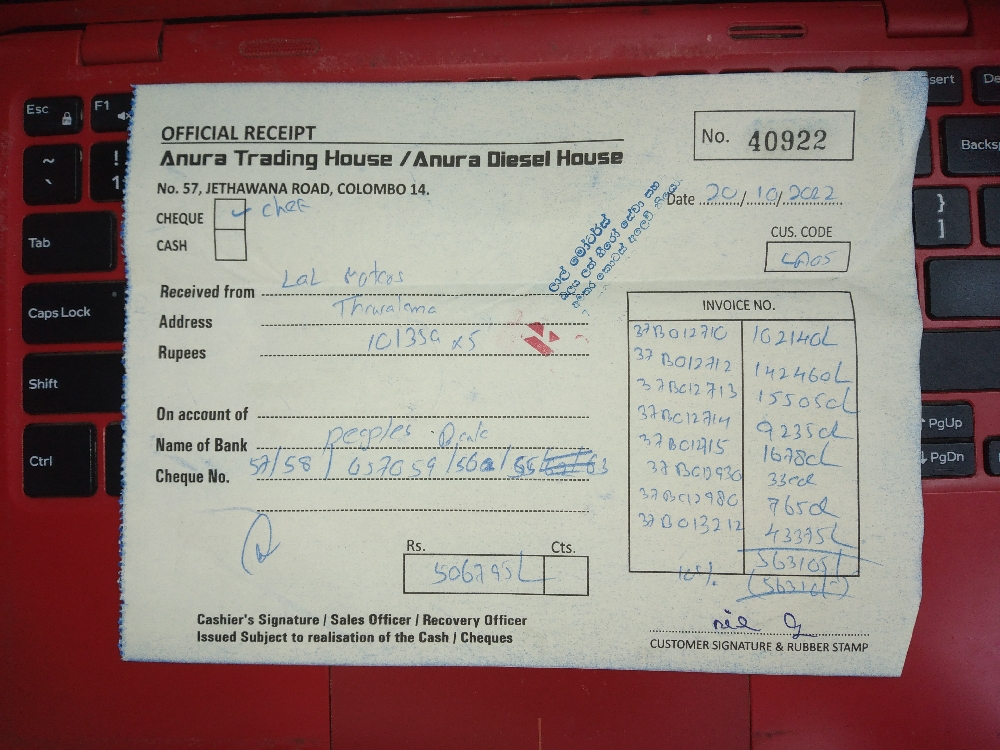 OFFICIAL RECEIPT
No. 40922
Anura Trading House / Anura Diesel House
No. 57, JETHAWANA ROAD, COLOMBO 14.
Date 20/10/2022
CHEQUE
CASH
CUS. CODE
Received from Lal Motors
Address
Rupees 101359 x5
INVOICE NO.
37B012710 102140
37B012712 142460
37B012713 155050
37B012714 92350
37B012715 16780
37B012930 3300
37B012980 7650
37B013212 43375
563105
10%
On account of
Name of Bank peoples Bank
Cheque No. 57/58/
Rs. Cts.
506795
Cashier's Signature / Sales Officer / Recovery Officer
Issued Subject to realisation of the Cash / Cheques
CUSTOMER SIGNATURE & RUBBER STAMP
Esc
F1
Tab
Caps Lock
Shift
Ctrl
PgUp
PgDn